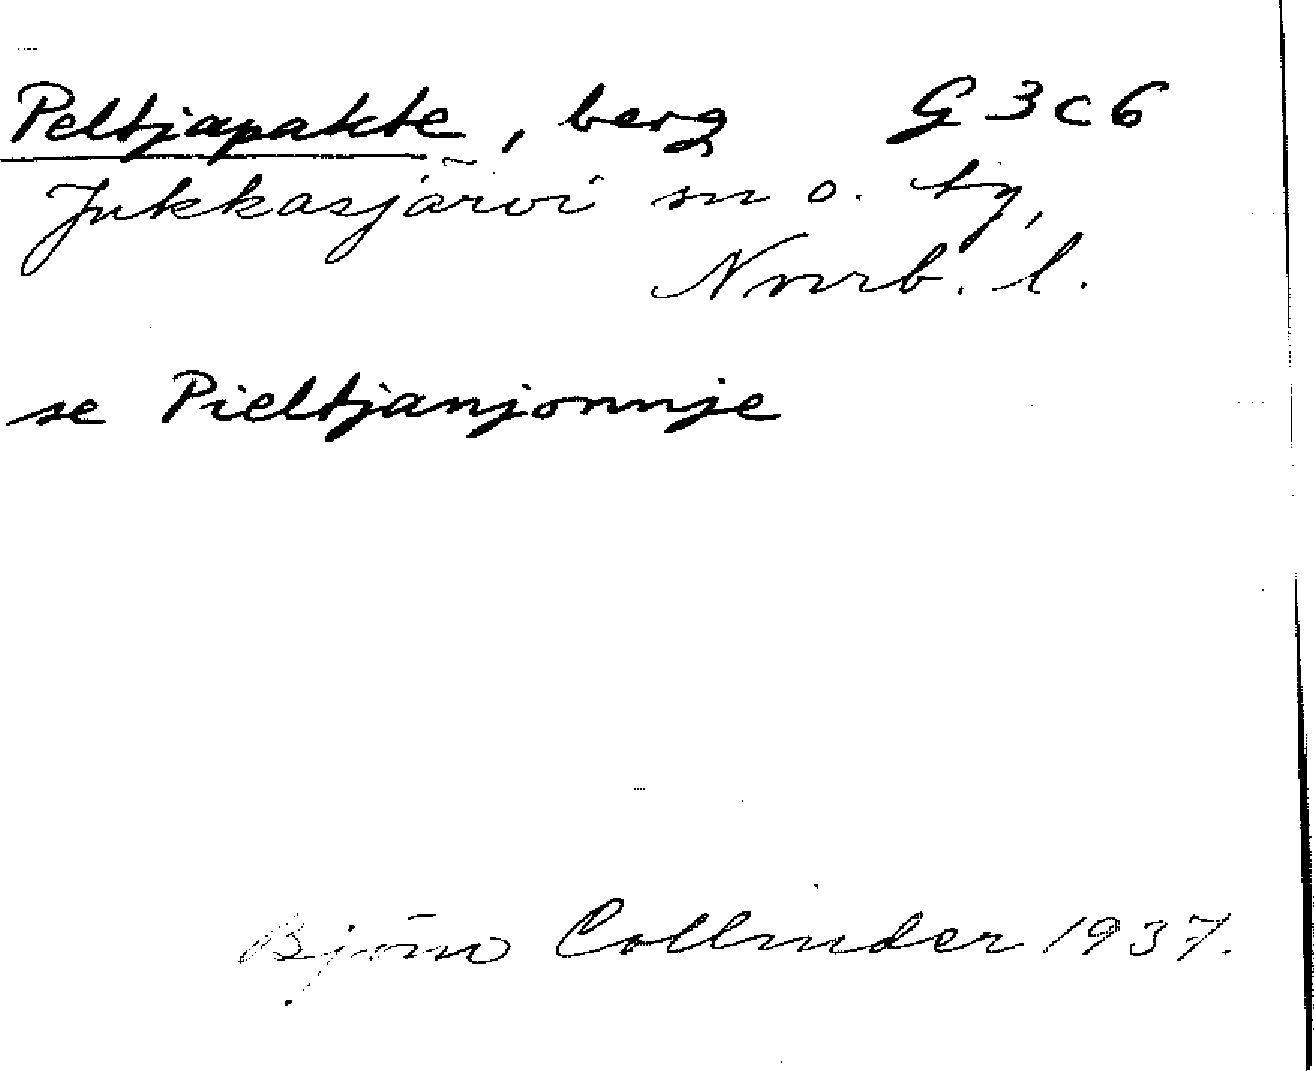 Peltjapakte, berg G3c6
Jukkasjärvi sn o. tg,
Norrb. l.
se Pieltjanjonnje
Björn Collinder 1937.